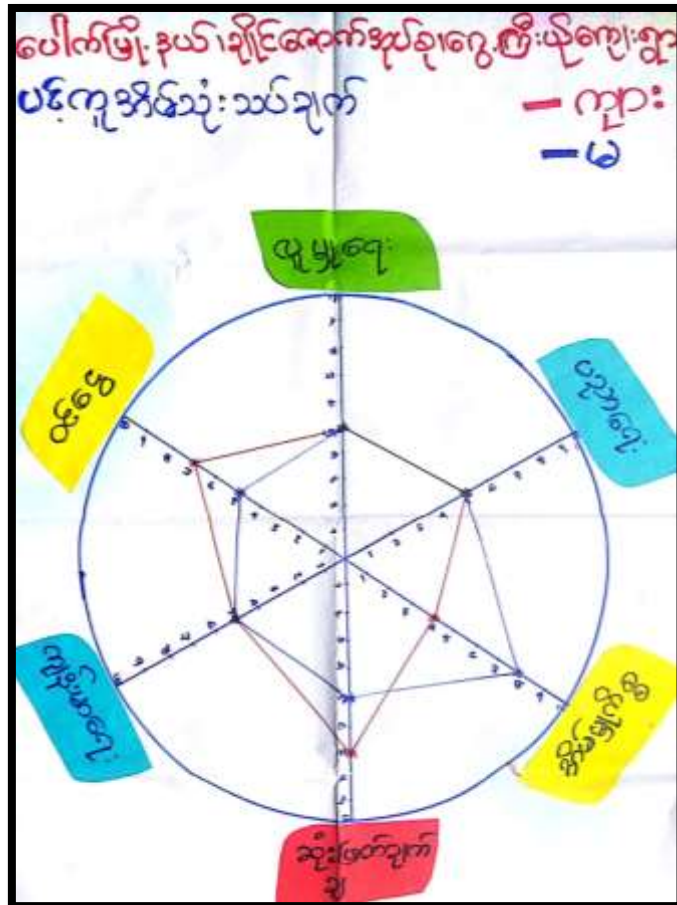 ပေါက်မြို့နယ်၊ချိုင်အောက်အုပ်စု၊ရွှေကြိုးယိုကျေးရွာ
ပင့်ကူအိမ်သုံးသပ်ချက်
– ကျား
– မ
လူမှုရေး
ပညာရေး
အိမ်မှုကိစ္စ
ဆုံးဖြတ်ချက်
ချ
ကျန်းမာရေး
ဝင်ငွေ